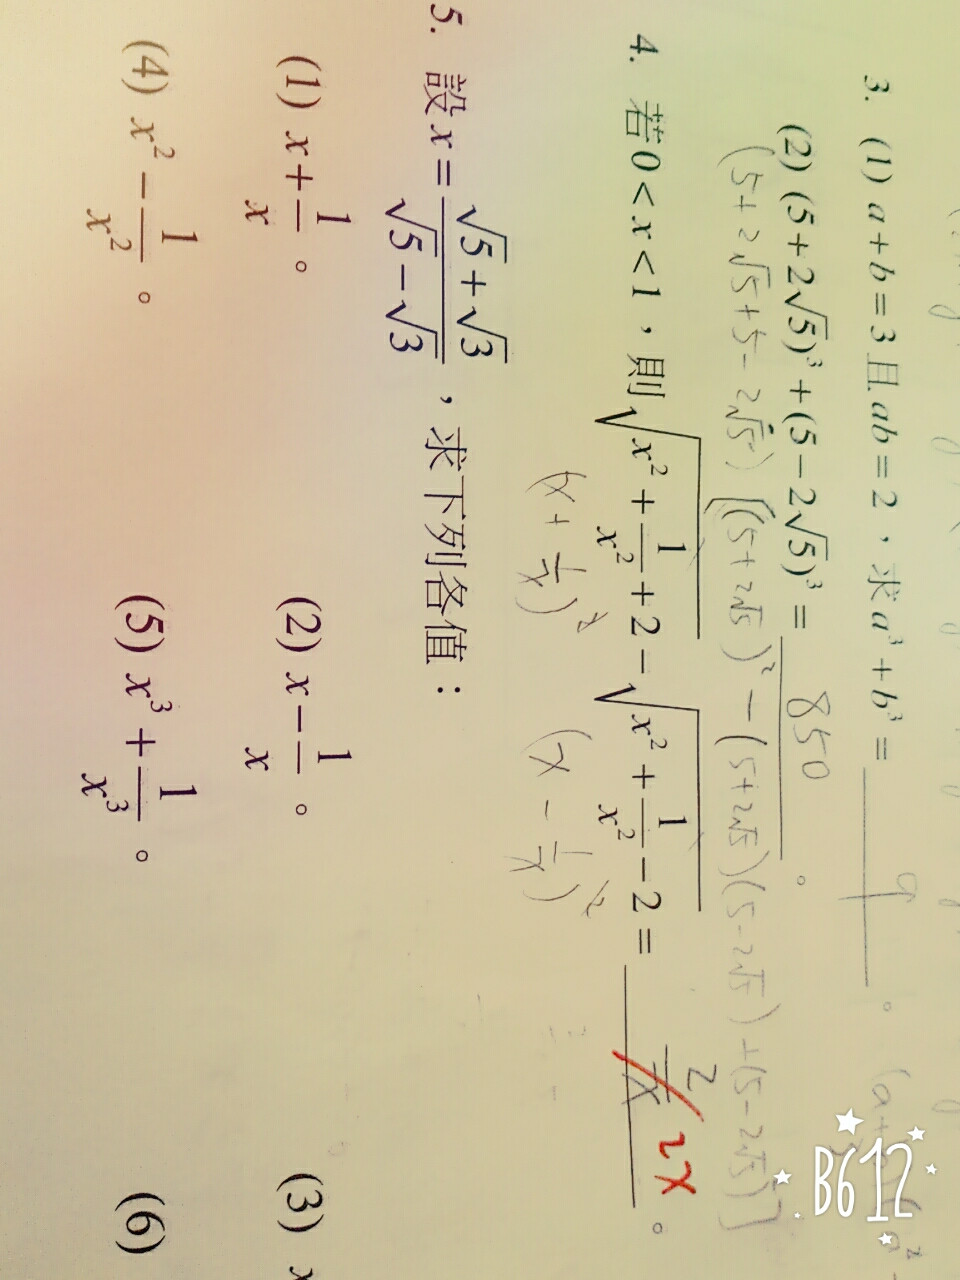 3. (1) a+b=3且ab=2，求a³+b³= 9。
(2) (5+2√5)³+(5-2√5)³= 850。
(5+2√5+5-2√5)[(5+2√5)²-(5+2√5)(5-2√5)+(5-2√5)²]
4. 若0<x<1，則√(x²+1/x²+2)-√(x²+1/x²-2)= 2/x 2x。
(x+1/x)² (x-1/x)²
5. 設x=(√5+√3)/(√5-√3)，求下列各值：
(1) x+1/x。 (2) x-1/x。 (3) x
(4) x²-1/x²。 (5) x³+1/x³。 (6)
B612